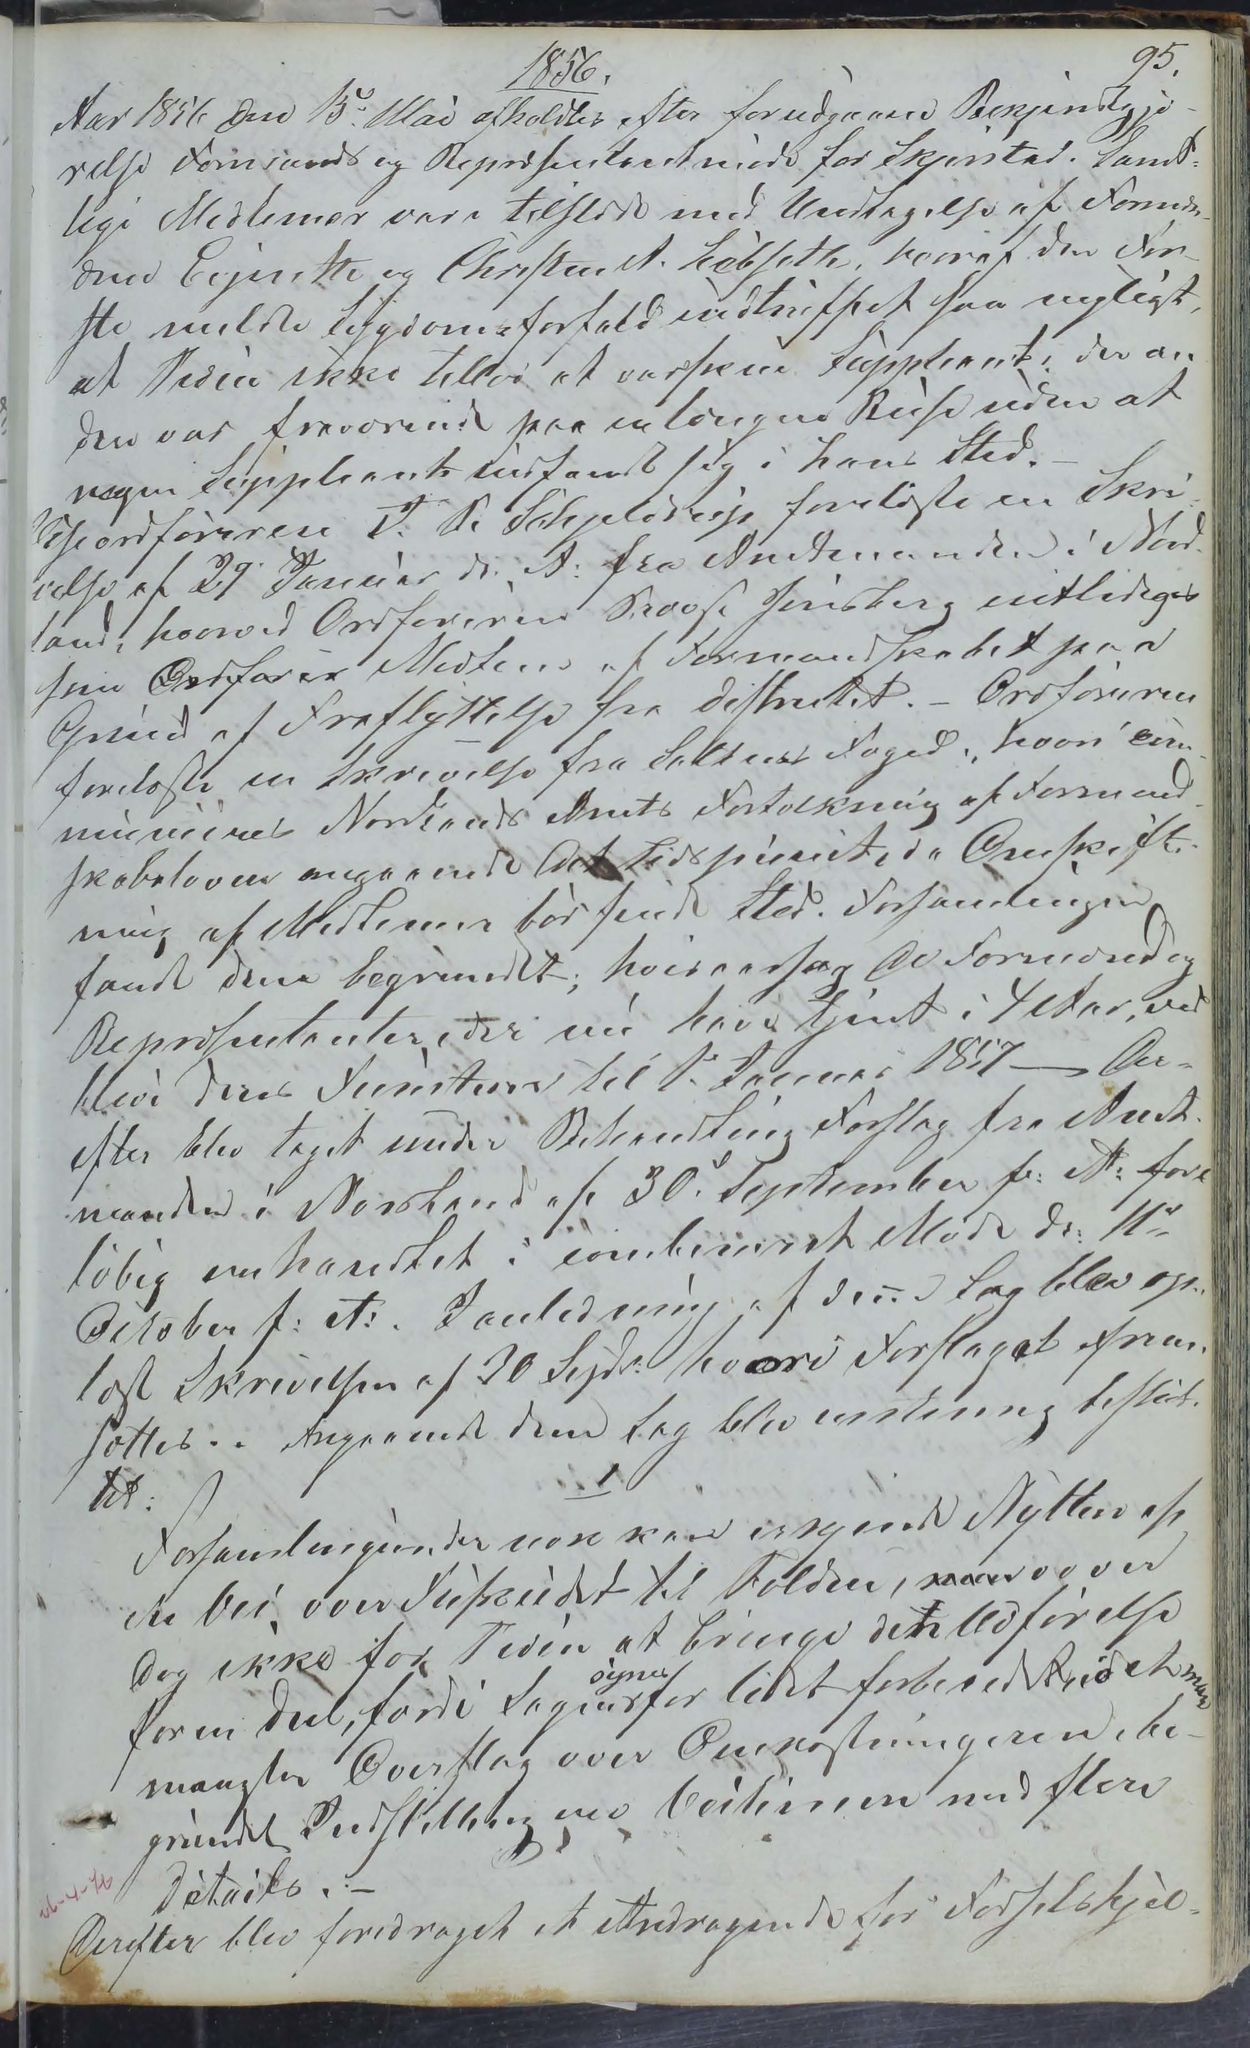 1856.
95.
Aar 1856 den 15de Mai afholdtes efter forudgaaende Bekjendtgjø-
relse Formands og Repræsentantmøde for Skjerstad. Samt-
lige Medlemer vare tilstede med Undtagelse af Formæn-
dene Ejerette og Christen A. , hvoraf den før-
ste meldte Sygdomsforfald indtruffet saa nyligt,
at Tiden ikke tillod at varsku Suppleant; den an
den var fraværende paa en længere Reise uden at
nogen Suppleant indfandt sig i hans Sted. –
Viseordføreren J. P. Schjeldrup foreløste en Skri-
velse af 29 Januar d: A: fra Amtmanden i Nord-
land, hvorved Ordføreren Provst Jentsberg entlediges
som Ordfører Medlem af Formandskabet paa
Grund af Fraflyttelse fra Distriktet. – Ordføreren
foreløste en Skrivelse fra Saltens Foged, hvori com-
municeres Nordlands Amts Fortolkning af Formand-
skabsloven angaaende det Tidspunct, da Omskift-
ning af Medlemer bør finde Sted. Forsamlingen
fandt denne begrundet; hvisaarsag de Formænd og
Repræsentanter, der nu have tjent i 4 Aar, ved
blive deres Funktion til 1. Januar 1857 – Der-
efter blev taget under Behandling Forslag fra Amt-
manden i Nordland af 30. September f: A: fore
løbig omhandlet i combineret Møde d: 11te
October f: A:. I anledning af denne Sag blev op-
løst Skrivelsen af 30 Septr: hvori Forslaget frem-
sættes.. Angaaende denne Sag blev enstemig beslut-
tet:
1
Forsamlingen, der nok kan erkjende Nytten af
en Vei over til Folden, vover
dog ikke for Tiden at bringe det til Udførelse
for en Deel, fordi Sagen synes for lidet forberedt, idet man
mangler Overslag over Omkostningerne, be-
grundet Indstilling om Veilinien med flere
Details. –
Derefter blev foredraget et Andragende for Forselskjel-
26-4-76